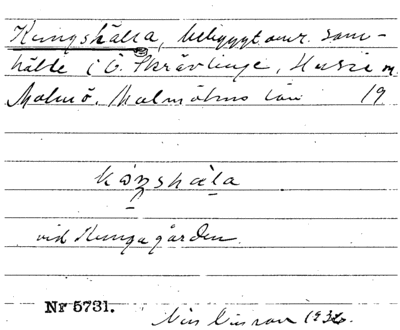 Kungshälla, bebyggt omr. sam-
hälle i Ö. Skrävlinge, Husie m.
Malmö. Malmöhus län 19
kɷŋshàla
vid Kungagården.
Nr 5731.
Nils Nilsson 1932